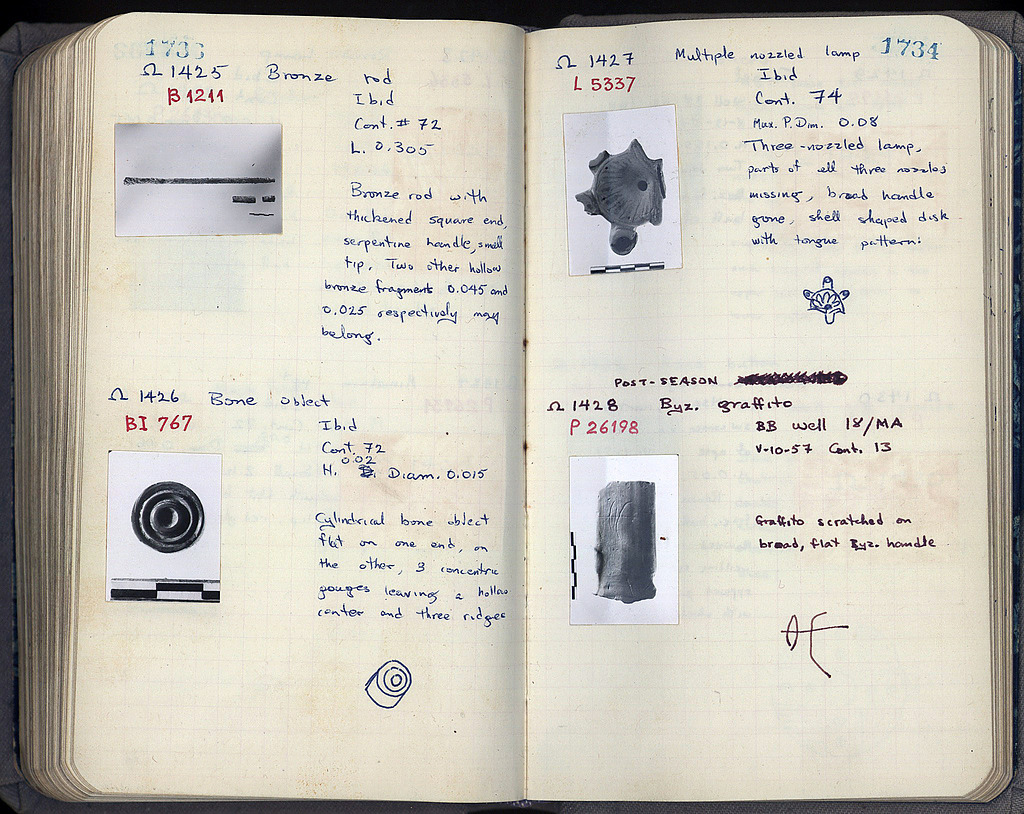 1733
Ω 1425 Bronze rod
B 1211
Ibid
Cont. # 72
L. 0.305
Bronze rod with
thickened square end,
serpentine handle, small
tip. Two other hollow
bronze fragments 0.045 and
0.025 respectively may
belong.
Ω 1426 Bone object
BI 767
Ibid
Cont. 72
0.02
H. Diam. 0.015
Cylindrical bone object
flat on one end, on
the other, 3 concentric
gouges leaving a hollow
center and three ridges
1734
Ω 1427 Multiple nozzled lamp
L 5337
Ibid
Cont. 74
Max. P. Dim. 0.08
Three-nozzled lamp,
parts of all three nozzles
missing, broad handle
gone, shell shaped disk
with tongue pattern:
POST-SEASON
Ω 1428 Byz. graffito
P 26198
BB well 18/MA
V-10-57 Cont. 13
Graffito scratched on
broad, flat Byz. handle